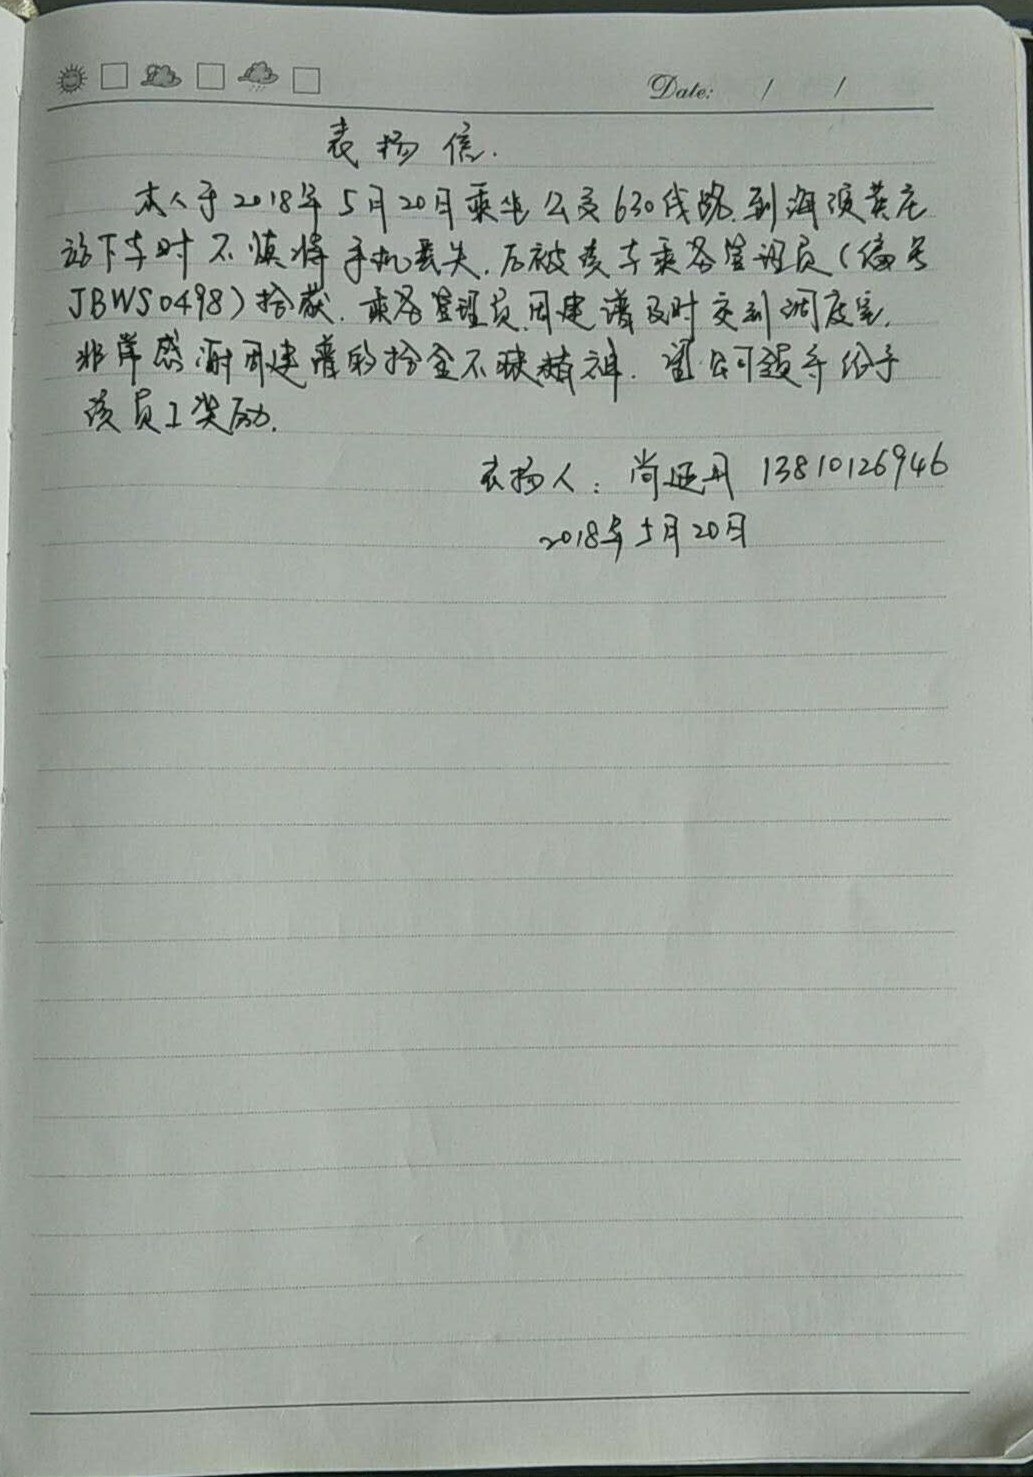 Date: / /
表扬信.
本人于2018年5月20日乘坐公交630线路.到海淀黄庄
站下车时不慎将手机丢失.后被该车乘务管理员(编号
JBWS0498)拾获.乘务管理员周建谱及时交到调度室.
非常感谢周建谱的拾金不昧精神.望公司领导给予
该员工奖励.
表扬人:尚延丹 13810126946
2018年5月20日